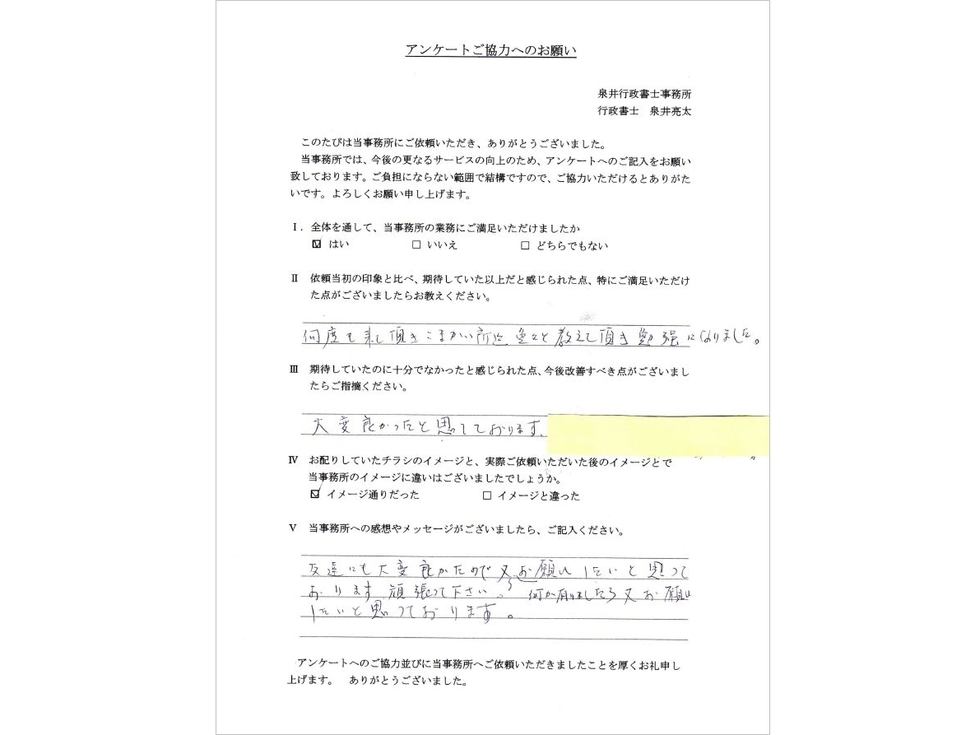 アンケートご協力へのお願い
泉井行政書士事務所
行政書士　泉井亮太
このたびは当事務所にご依頼いただき、ありがとうございました。
当事務所では、今後の更なるサービスの向上のため、アンケートへのご記入をお願い
致しております。ご負担にならない範囲で結構ですので、ご協力いただけるとありがた
いです。よろしくお願い申し上げます。
Ⅰ．全体を通して、当事務所の業務にご満足いただけましたか
☑ はい　□ いいえ　□ どちらでもない
Ⅱ　依頼当初の印象と比べ、期待していた以上だと感じられた点、特にご満足いただけ
た点がございましたらお教えください。
何度も来て頂きこまかい所迄色々と教えて頂き勉強になりました。
Ⅲ　期待していたのに十分でなかったと感じられた点、今後改善すべき点がございまし
たらご指摘ください。
大変良かったと思っております。
Ⅳ　お配りしていたチラシのイメージと、実際ご依頼いただいた後のイメージとで
当事務所のイメージに違いはございましたでしょうか。
☑ イメージ通りだった　□ イメージと違った
Ⅴ　当事務所への感想やメッセージがございましたら、ご記入ください。
友達にも大変良かたので又お願いしたいと思って
おります 頑張って下さい。何か有りましたら又お願い
したいと思っております。
アンケートへのご協力並びに当事務所へご依頼いただきましたことを厚くお礼申し
上げます。　ありがとうございました。